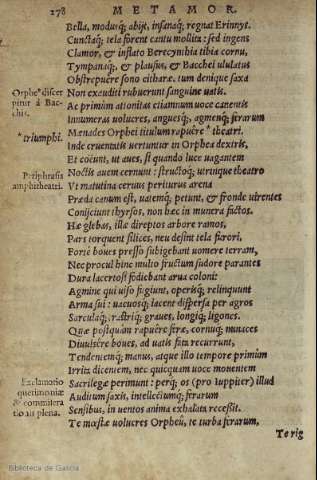 178 METAMOR.
Bella, modusq; abijt, insanaq; regnat Erinnys.
Cunctaq; tela forent cantu mollita: sed ingens
Clamor, & inflato Berecynthia tibia cornu,
Tympanaq;, & plausus, & Bacchei ululatus
Obstrepuere sono citharæ. tum denique saxa
Orphe⁹ discer
pitur à Bac-
chis.
Non exauditi rubuerunt sanguine uatis.
Ac primùm attonitas etiamnum uoce canentis
Innumeras uolucres, anguesq;, agmenq; ferarum
* triumphi.
Mænades Orphei titulum rapuêre * theatri.
Inde cruentatis uertuntur in Orphea dextris,
Et coëunt, ut aues, si quando luce uagantem
Periphrasis
amphitheatri.
Noctis auem cernunt: structoq; utrunque theatro
Vt matutina ceruus periturus arena
Præda canum est, uatemq; petunt, & fronde uirentes
Conijciunt thyrsos, non hæc in munera factos.
Hæ glebas, illæ direptos arbore ramos,
Pars torquent silices, neu desint tela furori,
Fortè boues presso subigebant uomere terram,
Nec procul hinc multo fructum sudore parantes
Dura lacertosi fodiebant arua coloni:
Agmine qui uiso fugiunt, operisq; relinquunt
Arma sui: uacuosq; iacent dispersa per agros
Sarculaq;, rastriq; graues, longiq; ligones.
Quæ postquàm rapuêre feræ, cornuq; minaces
Diuulsêre boues, ad uatis fata recurrunt,
Tendentemq; manus, atque illo tempore primùm
Irrita dicentem, nec quicquam uoce mouentem
Exclamatio
querimoniæ
& commiseratio
nis plena.
Sacrilegæ perimunt: perq; os (pro Iuppiter) illud
Auditum saxis, intellectumq; ferarum
Sensibus, in uentos anima exhalata recessit.
Te mœstæ uolucres Orpheû, te turba ferarum,
Te rig
Biblioteca de Galicia